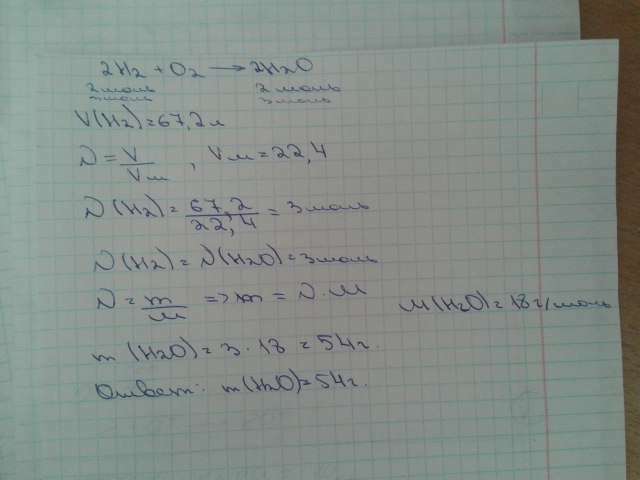 2H2 + O2 → 2H2O
2 моль 2 моль
3 моль 3 моль
V(H2) = 67,2 л
ν = V/Vм , Vм = 22,4
ν(H2) = 67,2/22,4 = 3 моль
ν(H2) = ν(H2O) = 3 моль
ν = m/M => m = ν · M M(H2O) = 18 г/моль
m (H2O) = 3 · 18 = 54 г.
Ответ: m(H2O) = 54 г.